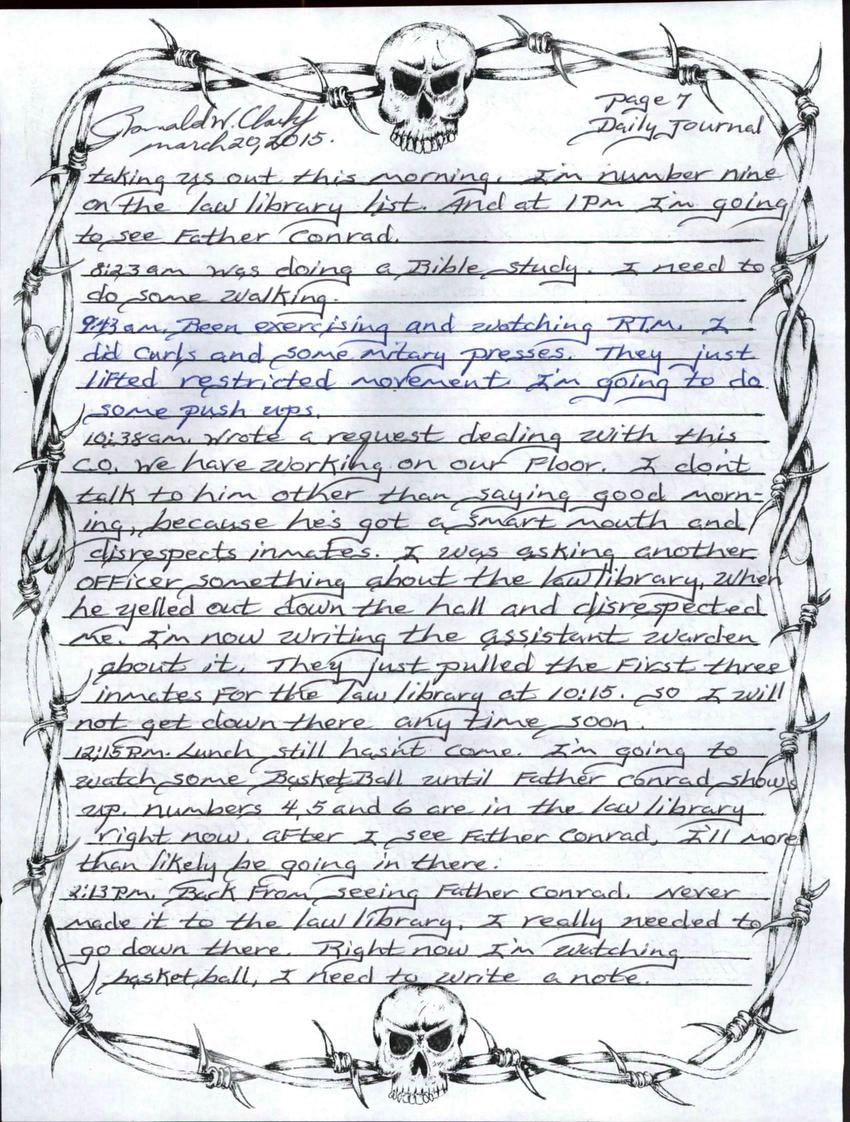 Ronald W. Clark Jr
march 20, 2015.
page 7
Daily Journal
taking us out this morning. I'm number nine
on the law library list. And at 1pm I'm going
to see Father Conrad.
8:23 am was doing a Bible study. I need to
do some walking.
9:43 am. Been exercising and watching RTM. I
did curls and some mitary presses. They just
lifted restricted movement. I'm going to do
some push ups.
10:38am. Wrote a request dealing with this
C.O. We have working on our Floor. I don't
talk to him other than saying good morn-
ing, because he's got a smart mouth and
disrespects inmates. I was asking another
OFFicer something about the law library, when
he yelled out down the hall and disrespected
me. I'm now writing the assistant warden
about it. They just pulled the First three
inmates For the law library at 10:15. so I will
not get down there any time soon.
12:15pm. Lunch still hasn't come. I'm going to
watch some BasketBall until Father Conrad shows
up. numbers 4, 5 and 6 are in the law library
right now. aFter I see Father Conrad, I'll more
than likely be going in there.
2:13pm. Back From seeing Father Conrad. Never
made it to the law library. I really needed to
go down there. Right now I'm watching
basketball, I need to write a note.